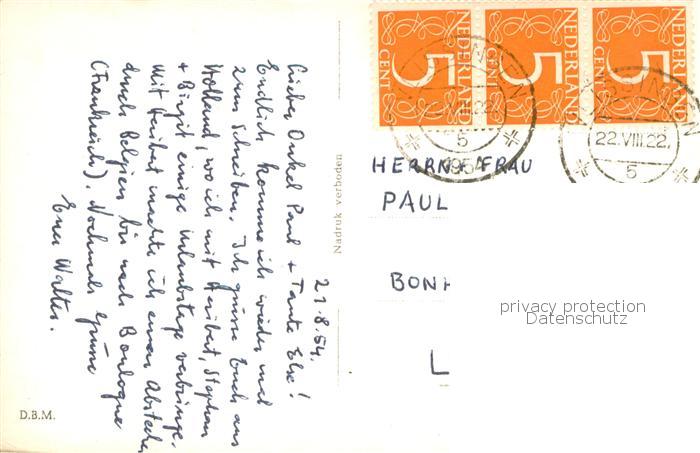 21.8.54.
Lieber Onkel Paul + Tante Else!
Endlich komme ich wieder mal
zum Schreiben. Ich grüsse Euch aus
Holland, wo ich mit Heribert, Stephan
+ Birgit einige Urlaubstage verbringe.
Mit Heribert machte ich einen Abstecher
durch Belgien bis nach Boulogne
(Frankreich). Nochmals Grüsse
Euer Walter.
Nadruk verboden
D.B.M.
NEDERLAND
5
CENT
NEDERLAND
5
CENT
NEDERLAND
5
CENT
VLISSINGEN
VIII.22.
5
1954
VLISSINGEN
22.VIII.22.
5
HERRN + FRAU
PAUL
BONH
L
privacy protection
Datenschutz